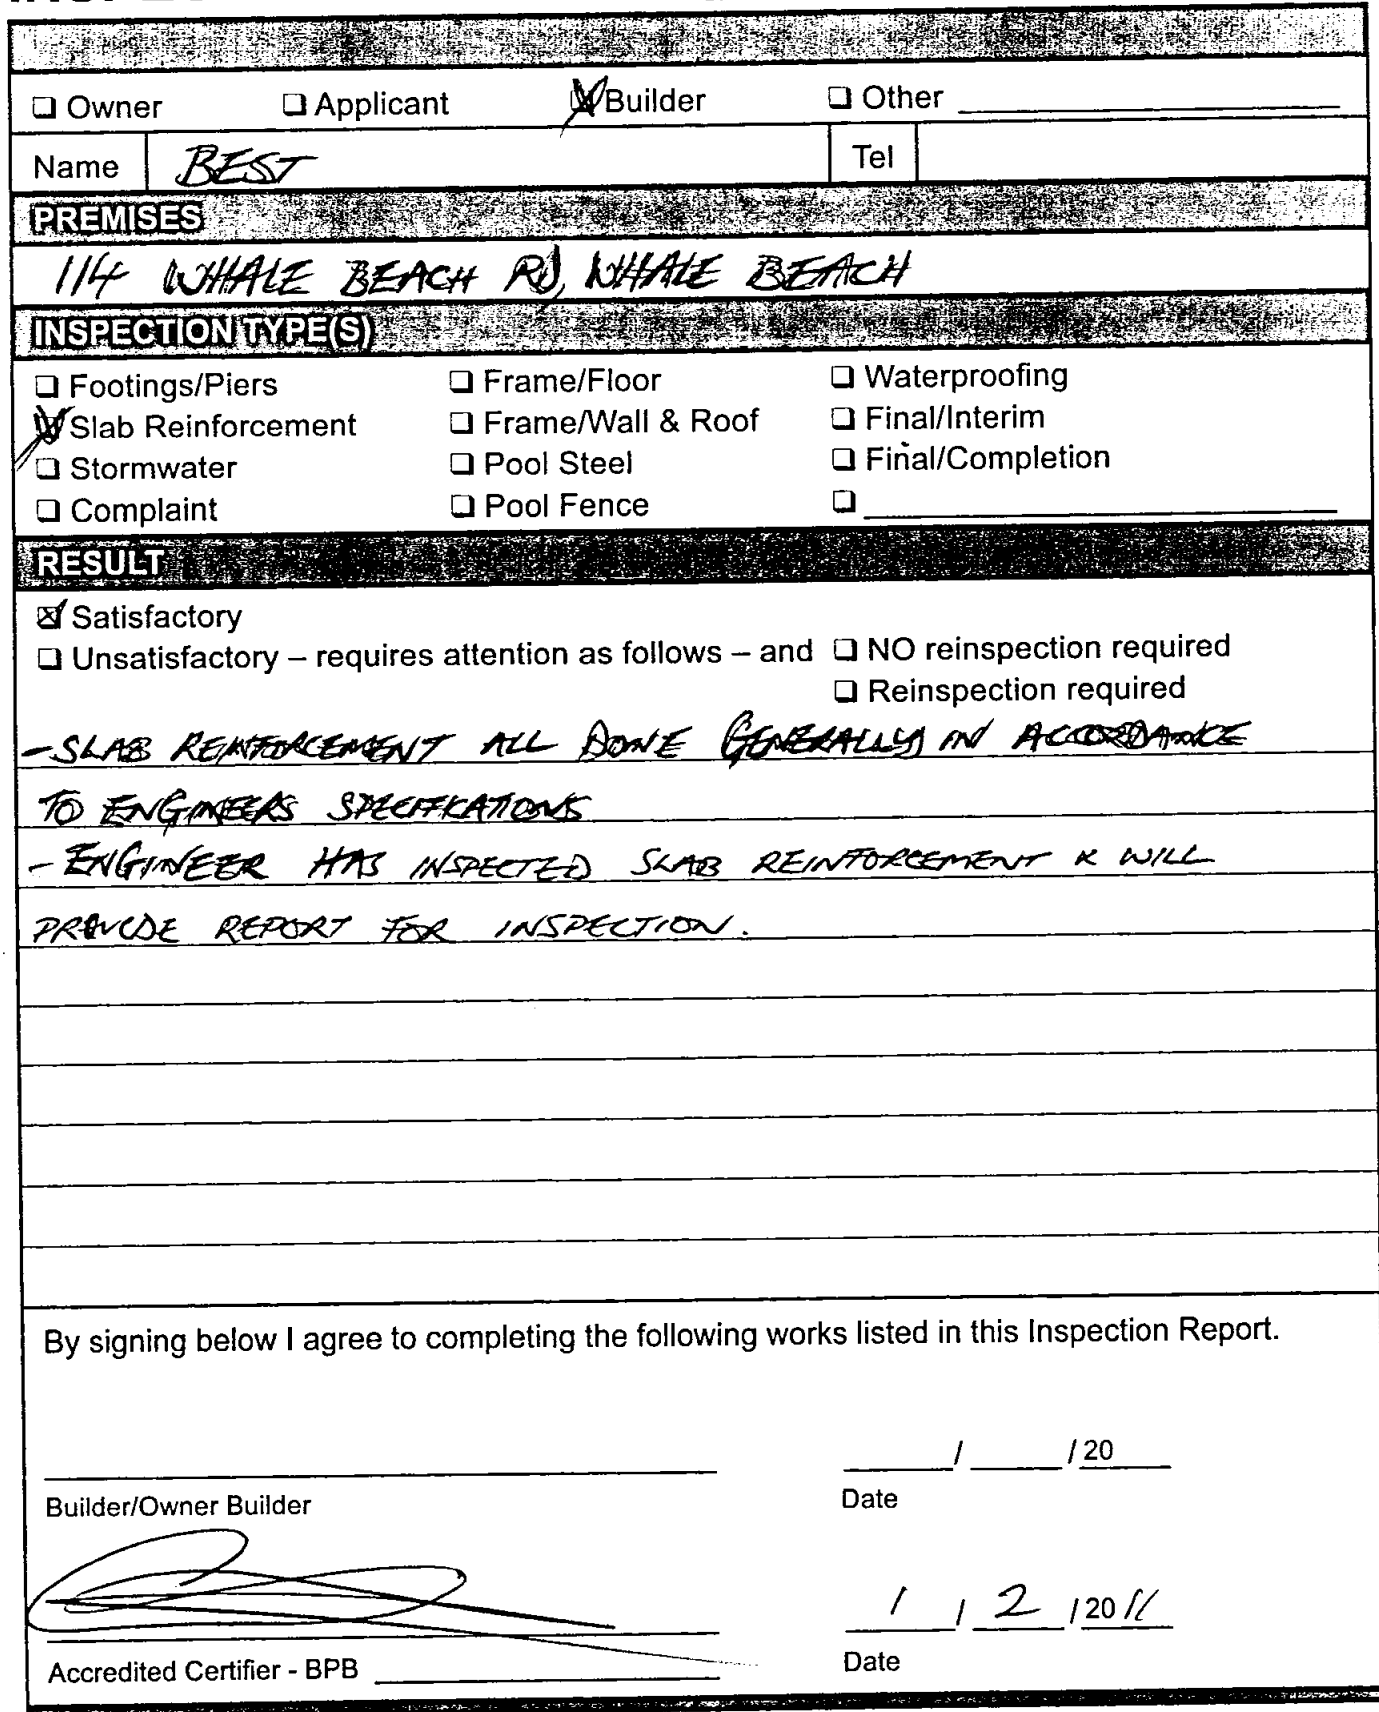 ☐ Owner ☐ Applicant ☒ Builder ☐ Other
Name BEST Tel
PREMISES
114 WHALE BEACH RD, WHALE BEACH
INSPECTION TYPE(S)
☐ Footings/Piers ☐ Frame/Floor ☐ Waterproofing
☒ Slab Reinforcement ☐ Frame/Wall & Roof ☐ Final/Interim
☐ Stormwater ☐ Pool Steel ☐ Final/Completion
☐ Complaint ☐ Pool Fence ☐
RESULT
☒ Satisfactory
☐ Unsatisfactory – requires attention as follows – and ☐ NO reinspection required
☐ Reinspection required
- SLAB REINFORCEMENT ALL DONE GENERALLY IN ACCORDANCE
TO ENGINEERS SPECIFICATIONS
- ENGINEER HAS INSPECTED SLAB REINFORCEMENT & WILL
PROVIDE REPORT FOR INSPECTION.
By signing below I agree to completing the following works listed in this Inspection Report.
/ /20
Builder/Owner Builder Date
1 / 2 /2011
Accredited Certifier - BPB Date